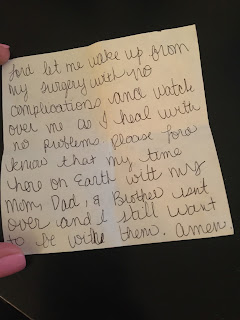 Lord let me wake up from
my surgery with no
complications and watch
over me as I heal with
no problems. Please Lord
know that my time
here on Earth with my
Mom, Dad, & Brother isnt
over and I still want
to be with them. Amen.